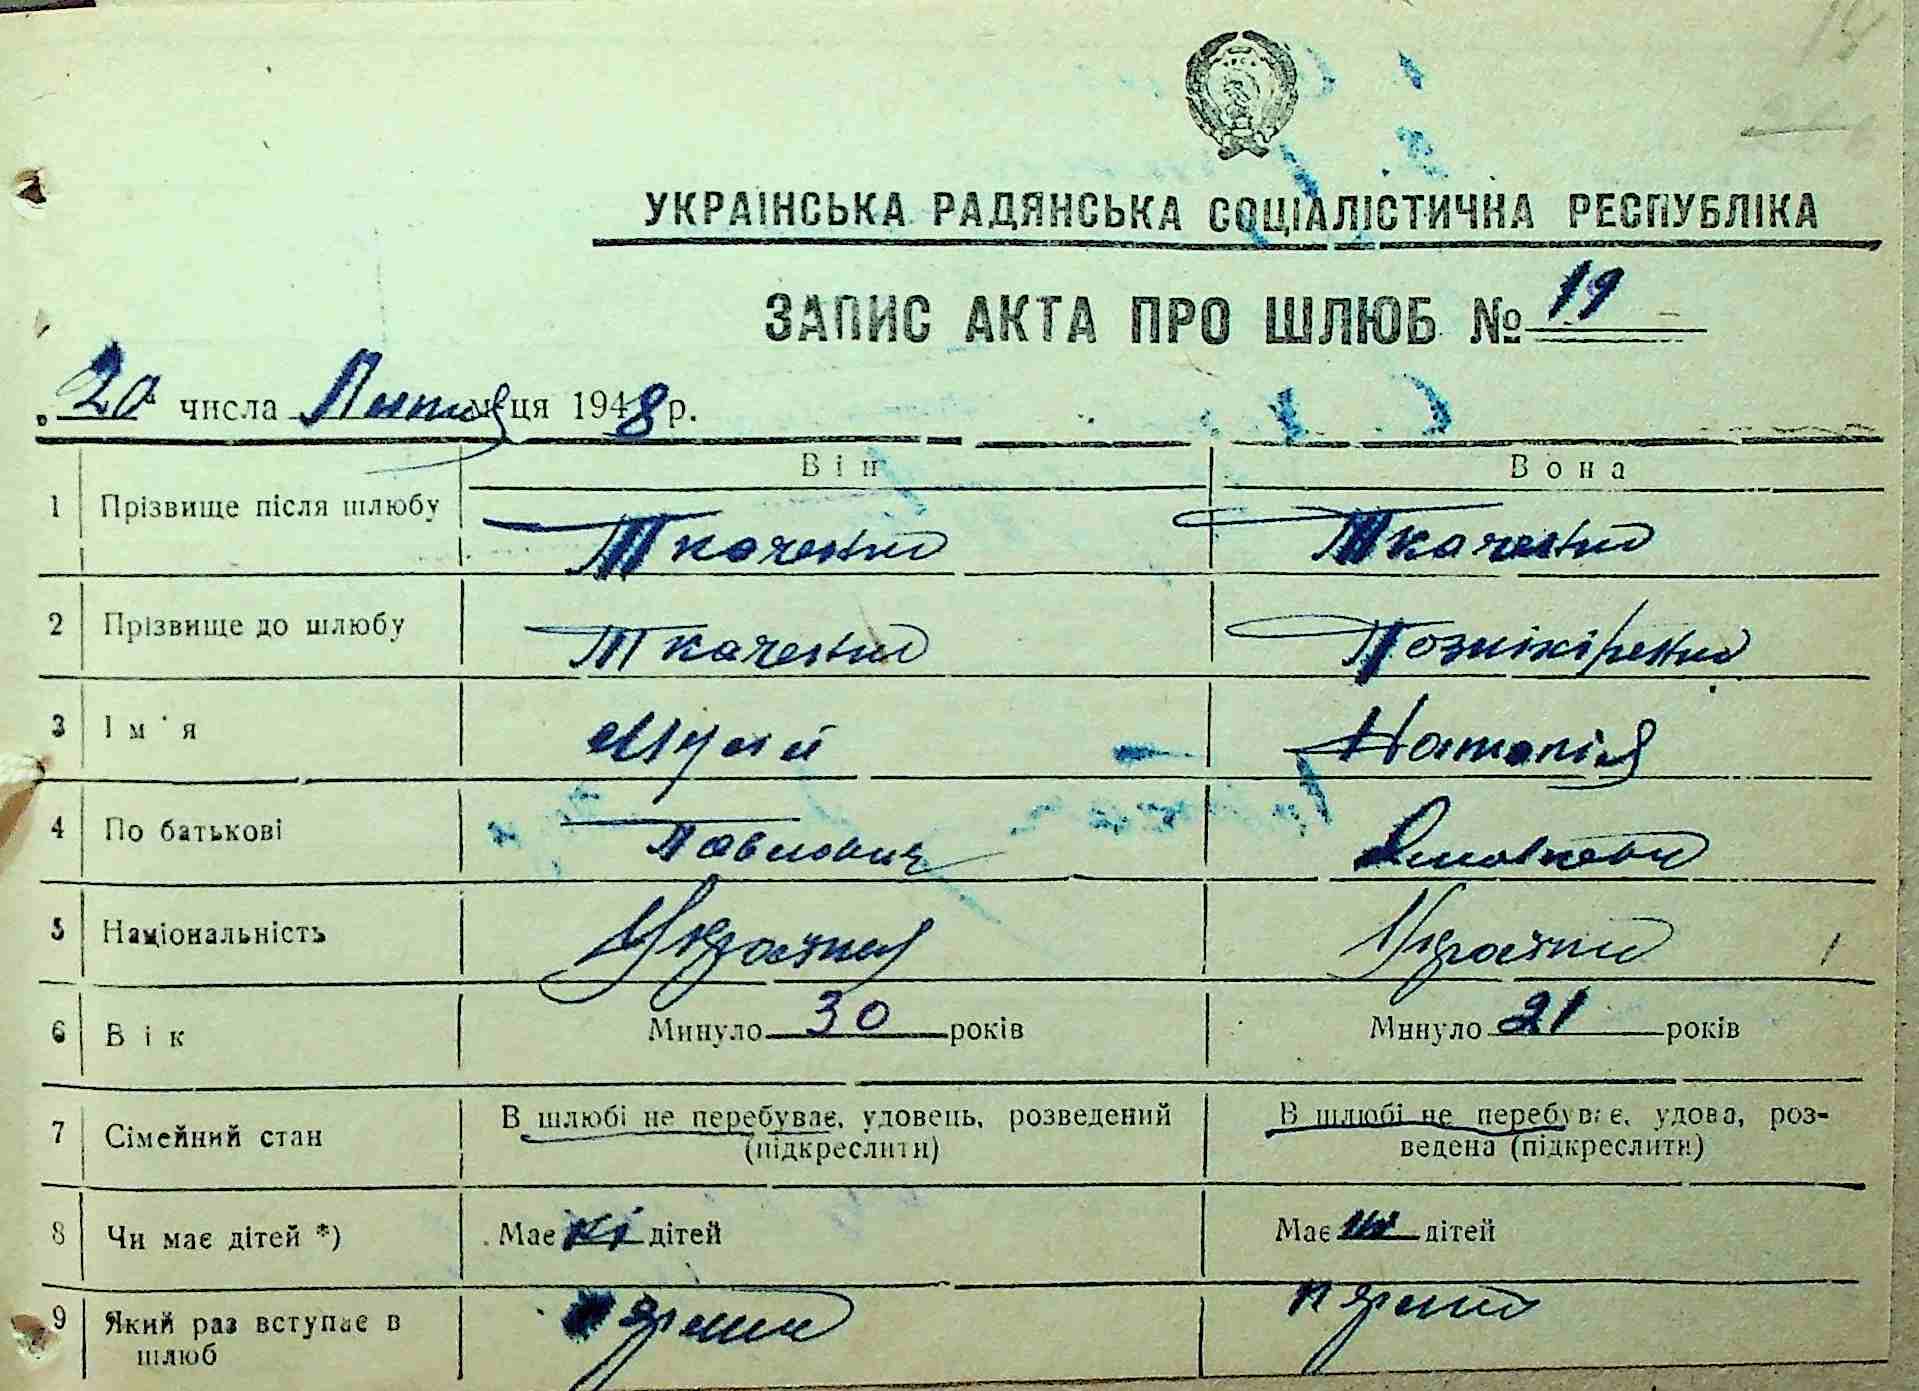 УКРАЇНСЬКА РАДЯНСЬКА СОЦІАЛІСТИЧНА РЕСПУБЛІКА
ЗАПИС АКТА ПРО ШЛЮБ № 19
20 числа Лютого м-ця 1948 р.
Він Вона
1 Прізвище після шлюбу Ткаченко Ткаченко
2 Прізвище до шлюбу Ткаченко
3 Ім'я Мусій Наталія
4 По батькові Павлович
5 Національність
6 Вік Минуло 30 років Минуло 21 років
7 Сімейний стан В шлюбі не перебуває, удовець, розведений (підкреслити) В шлюбі не перебуває, удова, роз-
ведена (підкреслити)
8 Чи має дітей *) Має ні дітей Має ні дітей
9 Який раз вступає в
шлюб